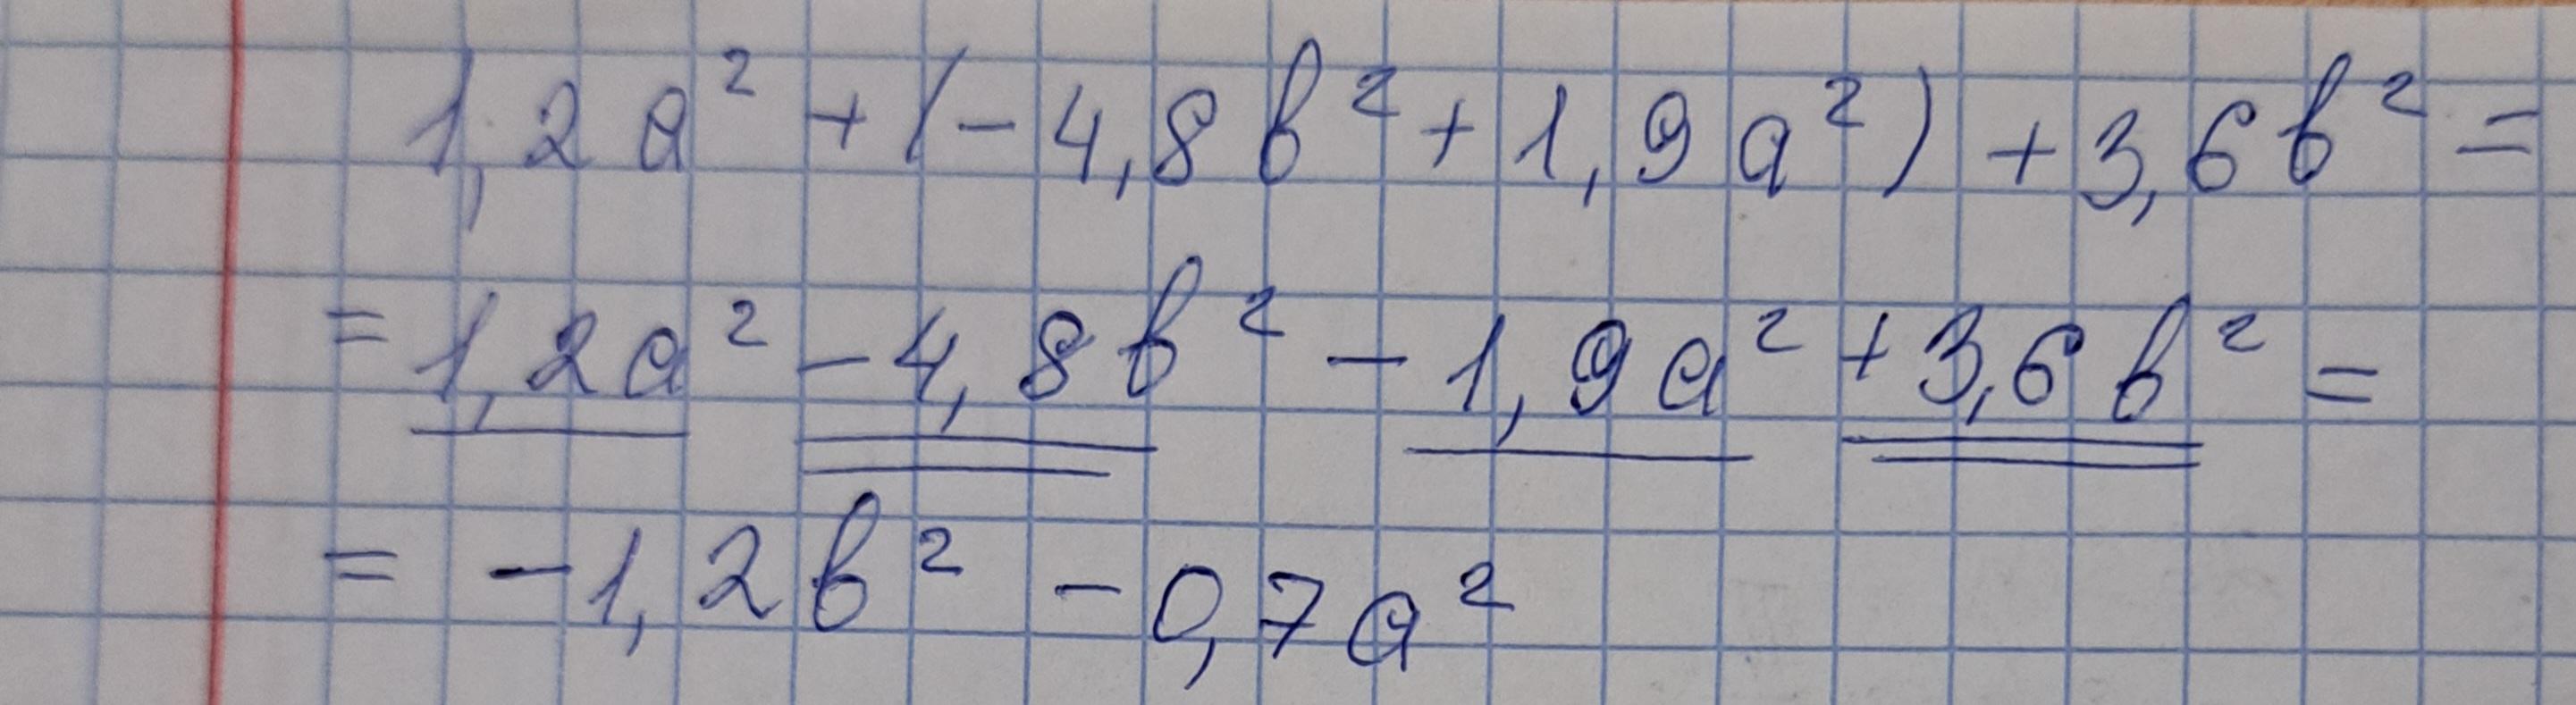 1,2a² + (-4,8b² + 1,9a²) + 3,6b² =
= 1,2a² - 4,8b² - 1,9a² + 3,6b² =
= -1,2b² - 0,7a²